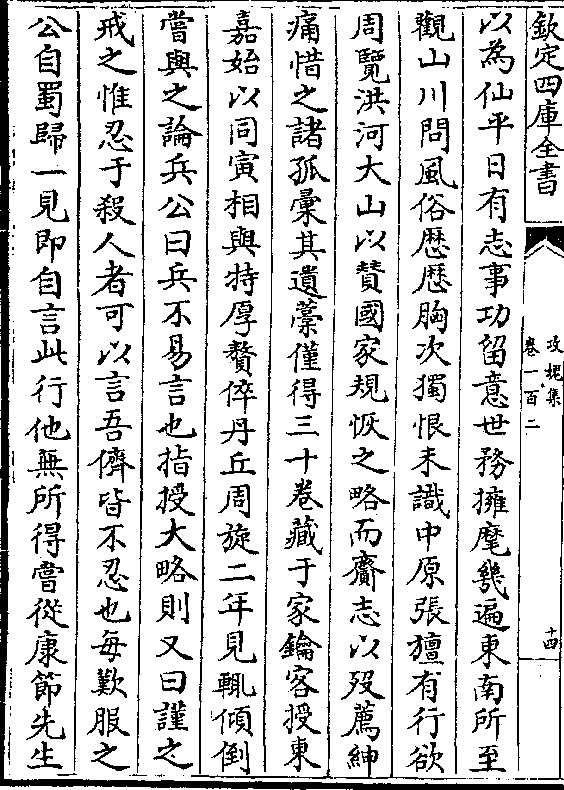 欽定四庫全書
攻媿集
卷一百二
十四
以為仙平日有志事功留意世務擁麾幾遍東南所至
觀山川問風俗歴歴胸次獨恨未識中原張猛有行欲
周覽洪河大山以賛國家規恢之略而齎志以殁薦紳
痛惜之諸孤彙其遺藳僅得三十卷藏于家鑰客授東
嘉始以同寅相與持厚贅倅丹丘周旋二年見輒傾倒
嘗與之論兵公曰兵不易言也指授大略則又曰謹之
戒之惟忍于殺人者可以言吾儕皆不忍也每歎服之
公自蜀歸一見即自言此行他無所得嘗從康節先生